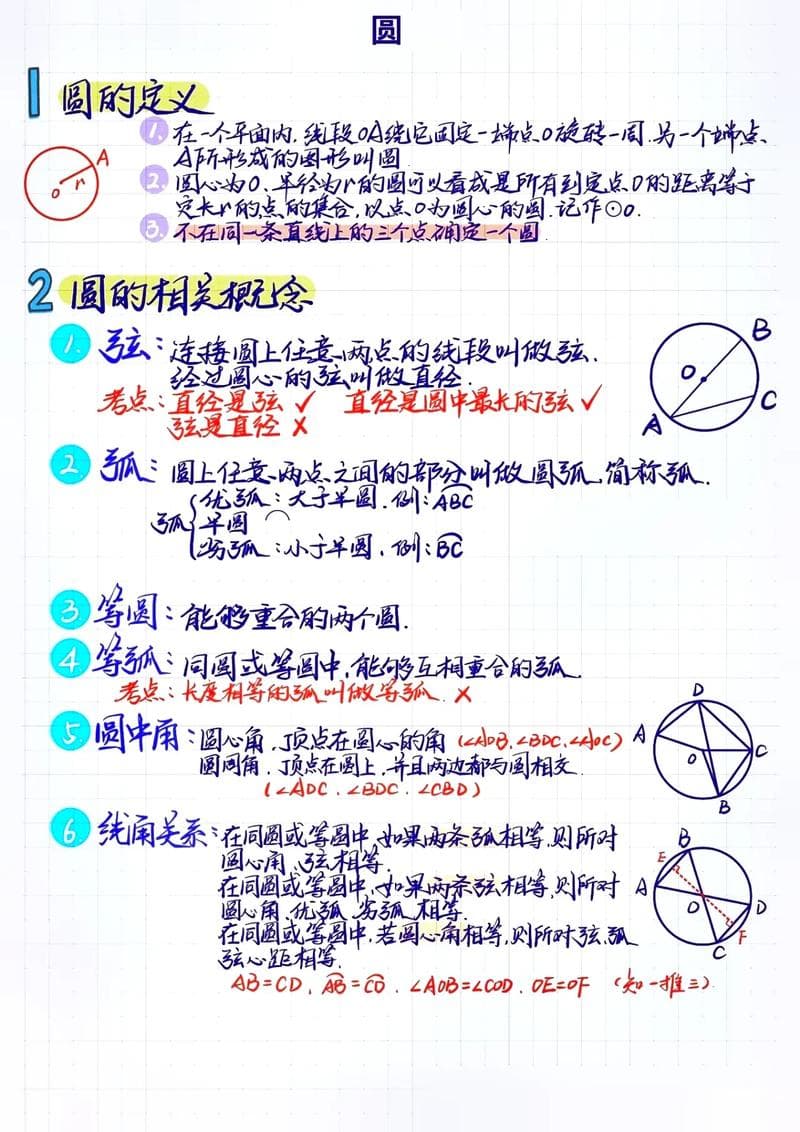 圆
1 圆的定义
1. 在一个平面内,线段OA绕它固定一端点O旋转一周,另一个端点、
A所形成的图形叫圆.
2. 圆心为O、半径为r的圆可以看成是所有到定点O的距离等于
定长r的点的集合,以点O为圆心的圆.记作⊙O.
3. 不在同一条直线上的三个点确定一个圆.
A
O r
2 圆的相关概念
1. 弦:连接圆上任意两点的线段叫做弦.
经过圆心的弦叫做直径.
考点:直径是弦 ✓ 直径是圆中最长的弦 ✓
弦是直径 ×
B
O
C
A
2. 弧:圆上任意两点之间的部分叫做圆弧,简称弧.
弧{优弧:大于半圆.例:⌒ABC
半圆 ⌒
劣弧:小于半圆,例:⌒BC
3 等圆:能够重合的两个圆.
4. 等弧:同圆或等圆中,能够互相重合的弧.
考点:长度相等的弧叫做等弧.×
5. 圆中角:圆心角,顶点在圆心的角(∠AOB.∠BOC.∠AOC)
圆周角.顶点在圆上,并且两边都与圆相交.
(∠ADC.∠BDC.∠CBD)
D
A
O C
B
6. 线角关系:在同圆或等圆中,如果两条弧相等,则所对
圆心角、弦相等.
在同圆或等圆中,如果两条弦相等,则所对
圆心角.优弧.劣弧相等.
在同圆或等圆中,若圆心角相等,则所对弦.弧
弦心距相等.
AB=CD,⌒AB=⌒CD,∠AOB=∠COD,OE=OF(知一推三)
B
E
A
O D
F
C